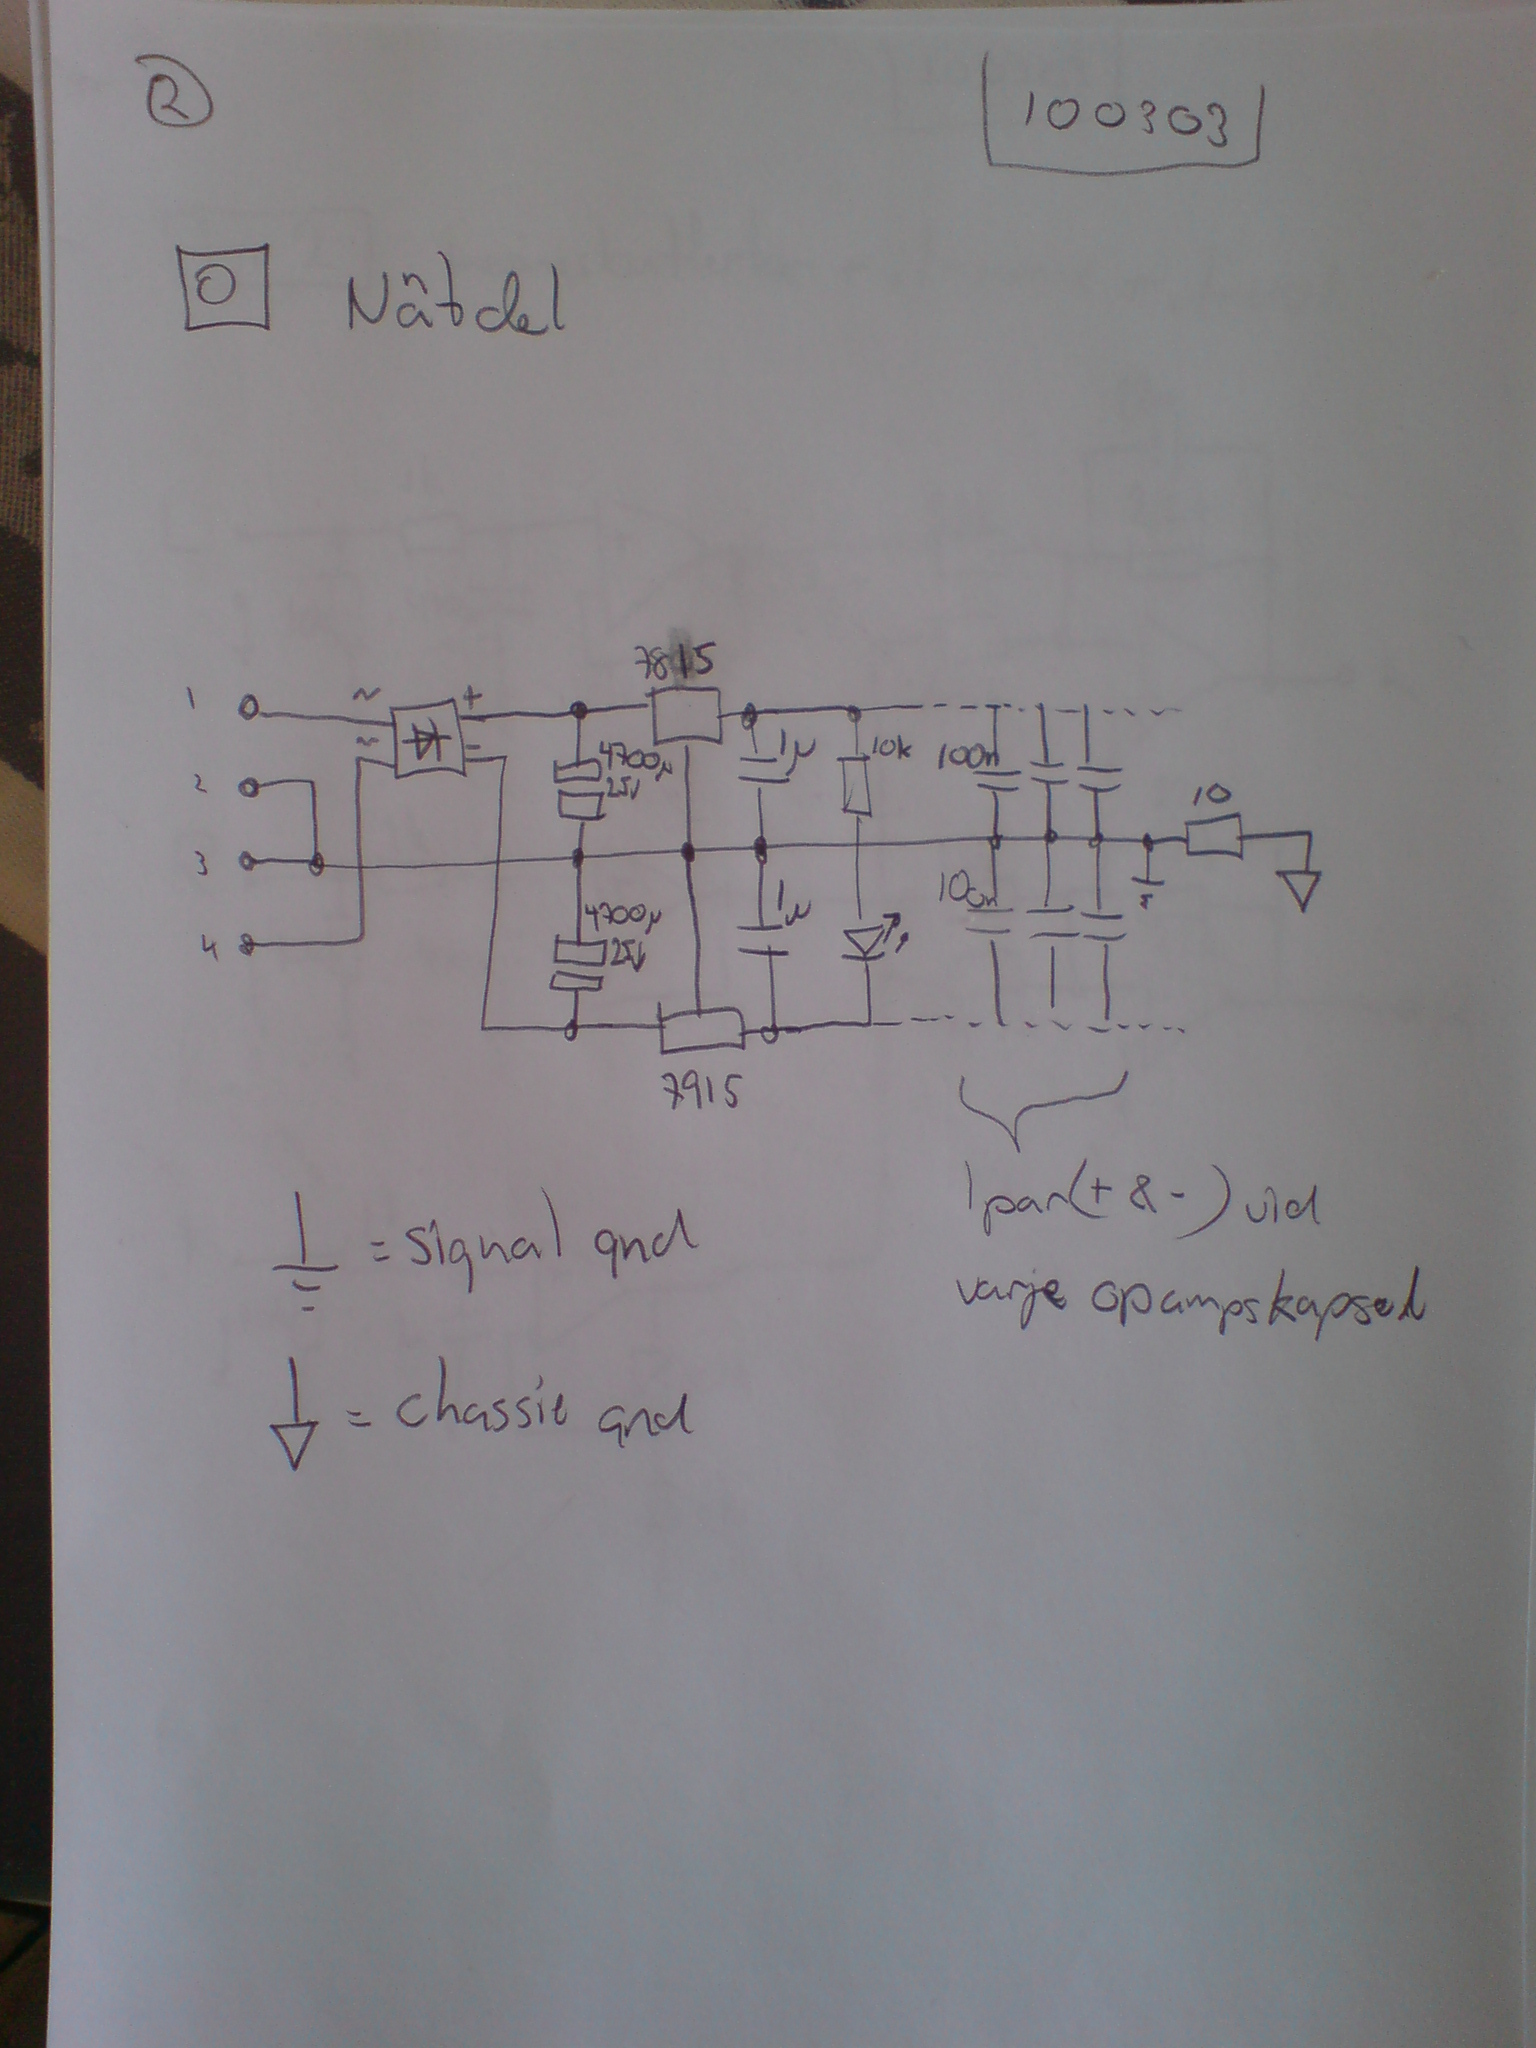 2
100303
0 Nätdel
7815
1 ~ +
~ -
4700µ 1µ 10k 100n
25V
2
10
3
4700µ 1µ 100n
25V
4
7915
1 par (+ & -) vid
varje opampskapsel
= signal gnd
= chassie gnd